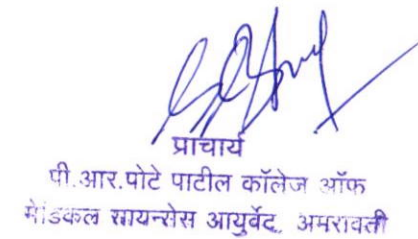 प्राचार्य
पी.आर.पोटे पाटील कॉलेज ऑफ
मेडिकल सायन्सेस आयुर्वेद, अमरावती